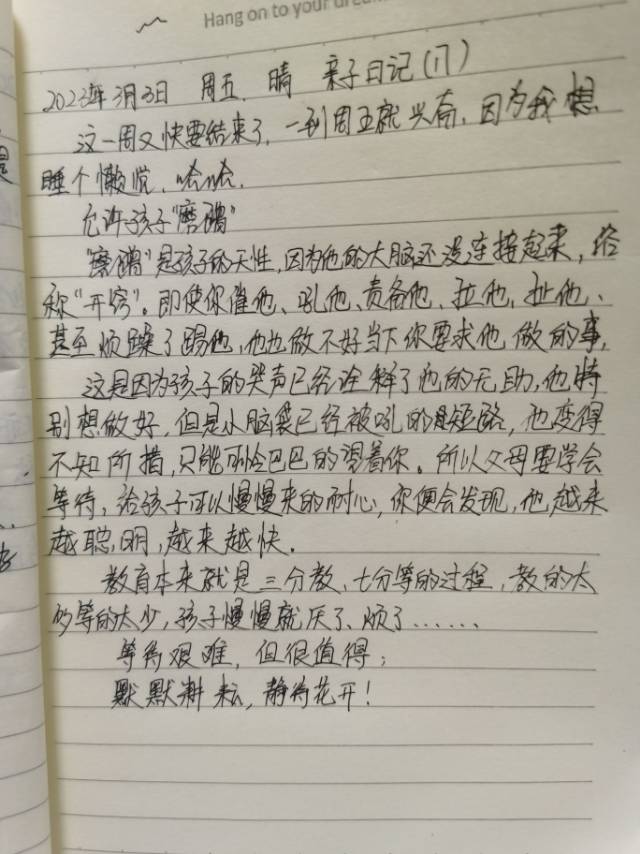 Hang on to your dream
2023年3月3日 周五 晴 亲子日记(17)
这一周又快要结束了,一到周五就兴奋,因为我想
睡个懒觉,哈哈.
允许孩子"磨蹭"
"磨蹭"是孩子的天性,因为他的大脑还没连接起来,俗
称"开窍"。即使你催他、吼他、责备他、拉他,扯他、
甚至烦躁了踢他,他也做不好当下你要求他做的事,
这是因为孩子的哭声已经诠释了他的无助,他特
别想做好,但是小脑袋已经被吼的短路,他变得
不知所措,只能可怜巴巴的望着你。所以父母要学会
等待,给孩子可以慢慢来的耐心,你便会发现,他越来
越聪明,越来越快.
教育本来就是三分教,七分等的过程,教的太
多等的太少,孩子慢慢就厌了、烦了......
等待艰难,但很值得;
默默耕耘,静待花开!